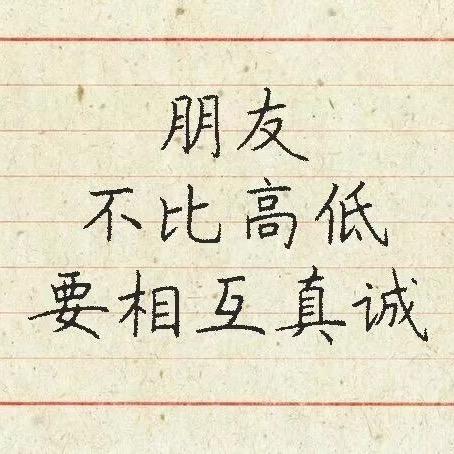 朋友
不比高低
要相互真诚